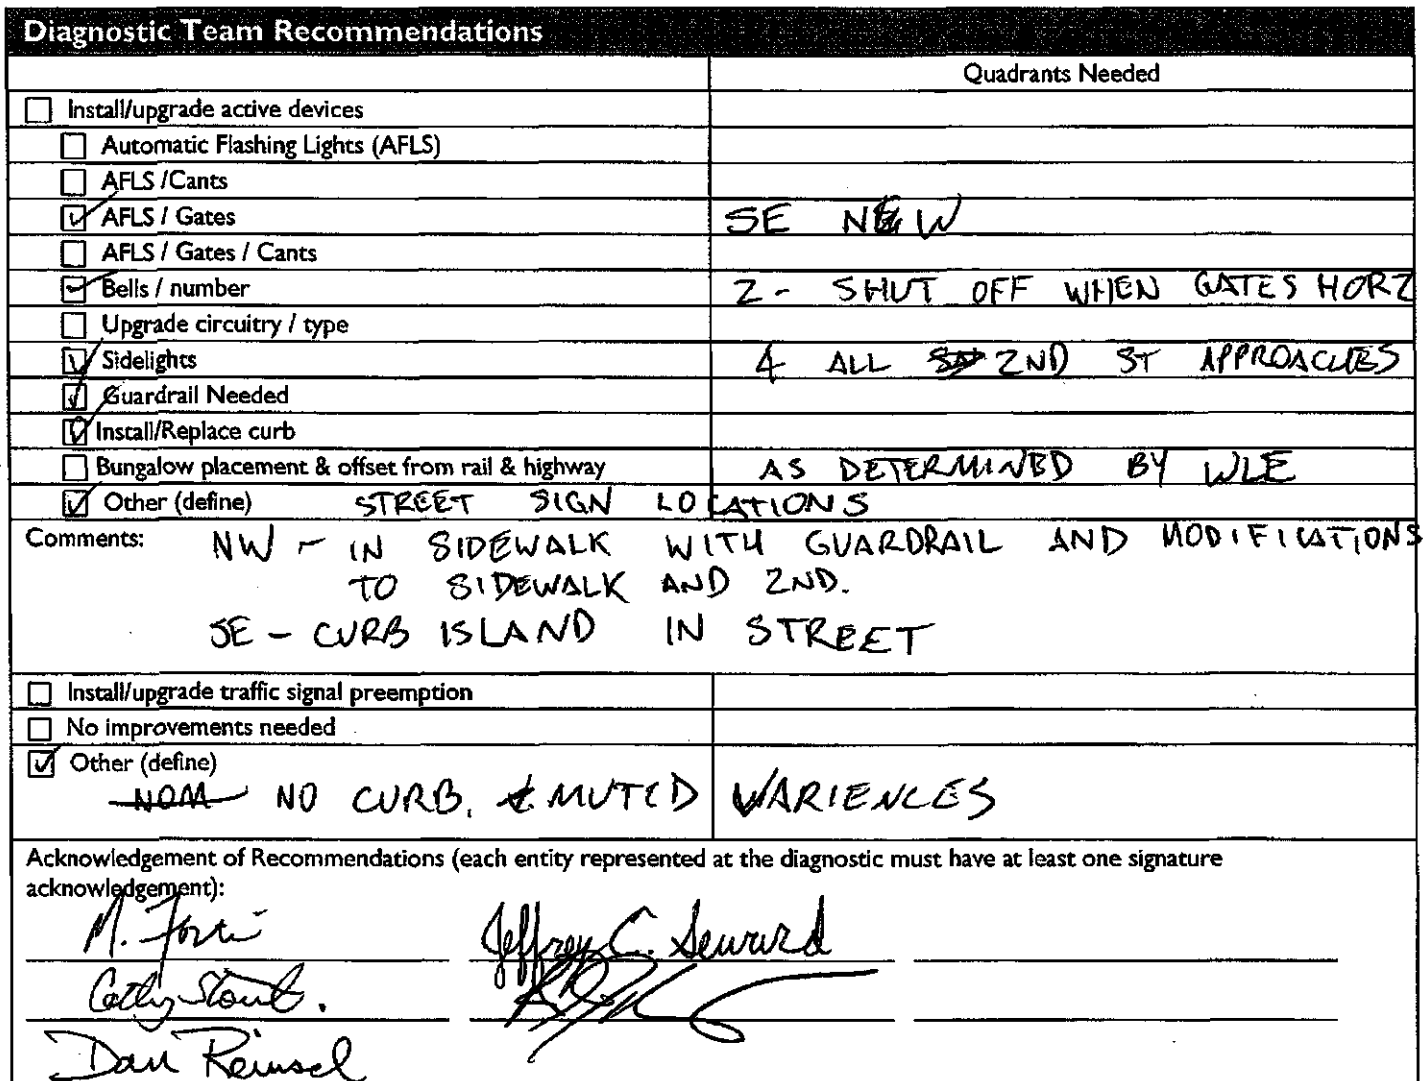 Diagnostic Team Recommendations
Quadrants Needed
Install/upgrade active devices
Automatic Flashing Lights (AFLS)
AFLS /Cants
AFLS / Gates SE NW
AFLS / Gates / Cants
Bells / number 2 - SHUT OFF WHEN GATES HORZ
Upgrade circuitry / type
Sidelights 4 ALL 2ND ST APPROACHES
Guardrail Needed
Install/Replace curb
Bungalow placement & offset from rail & highway AS DETERMINED BY WLE
Other (define) STREET SIGN LOCATIONS
Comments: NW - IN SIDEWALK WITH GUARDRAIL AND MODIFICATIONS
TO SIDEWALK AND 2ND.
SE - CURB ISLAND IN STREET
Install/upgrade traffic signal preemption
No improvements needed
Other (define)
NOM NO CURB, & MUTCD VARIENCES
Acknowledgement of Recommendations (each entity represented at the diagnostic must have at least one signature
acknowledgement):
M. Forte Jeffrey C. Seward
Cathy Stout.
Dan Reinsel